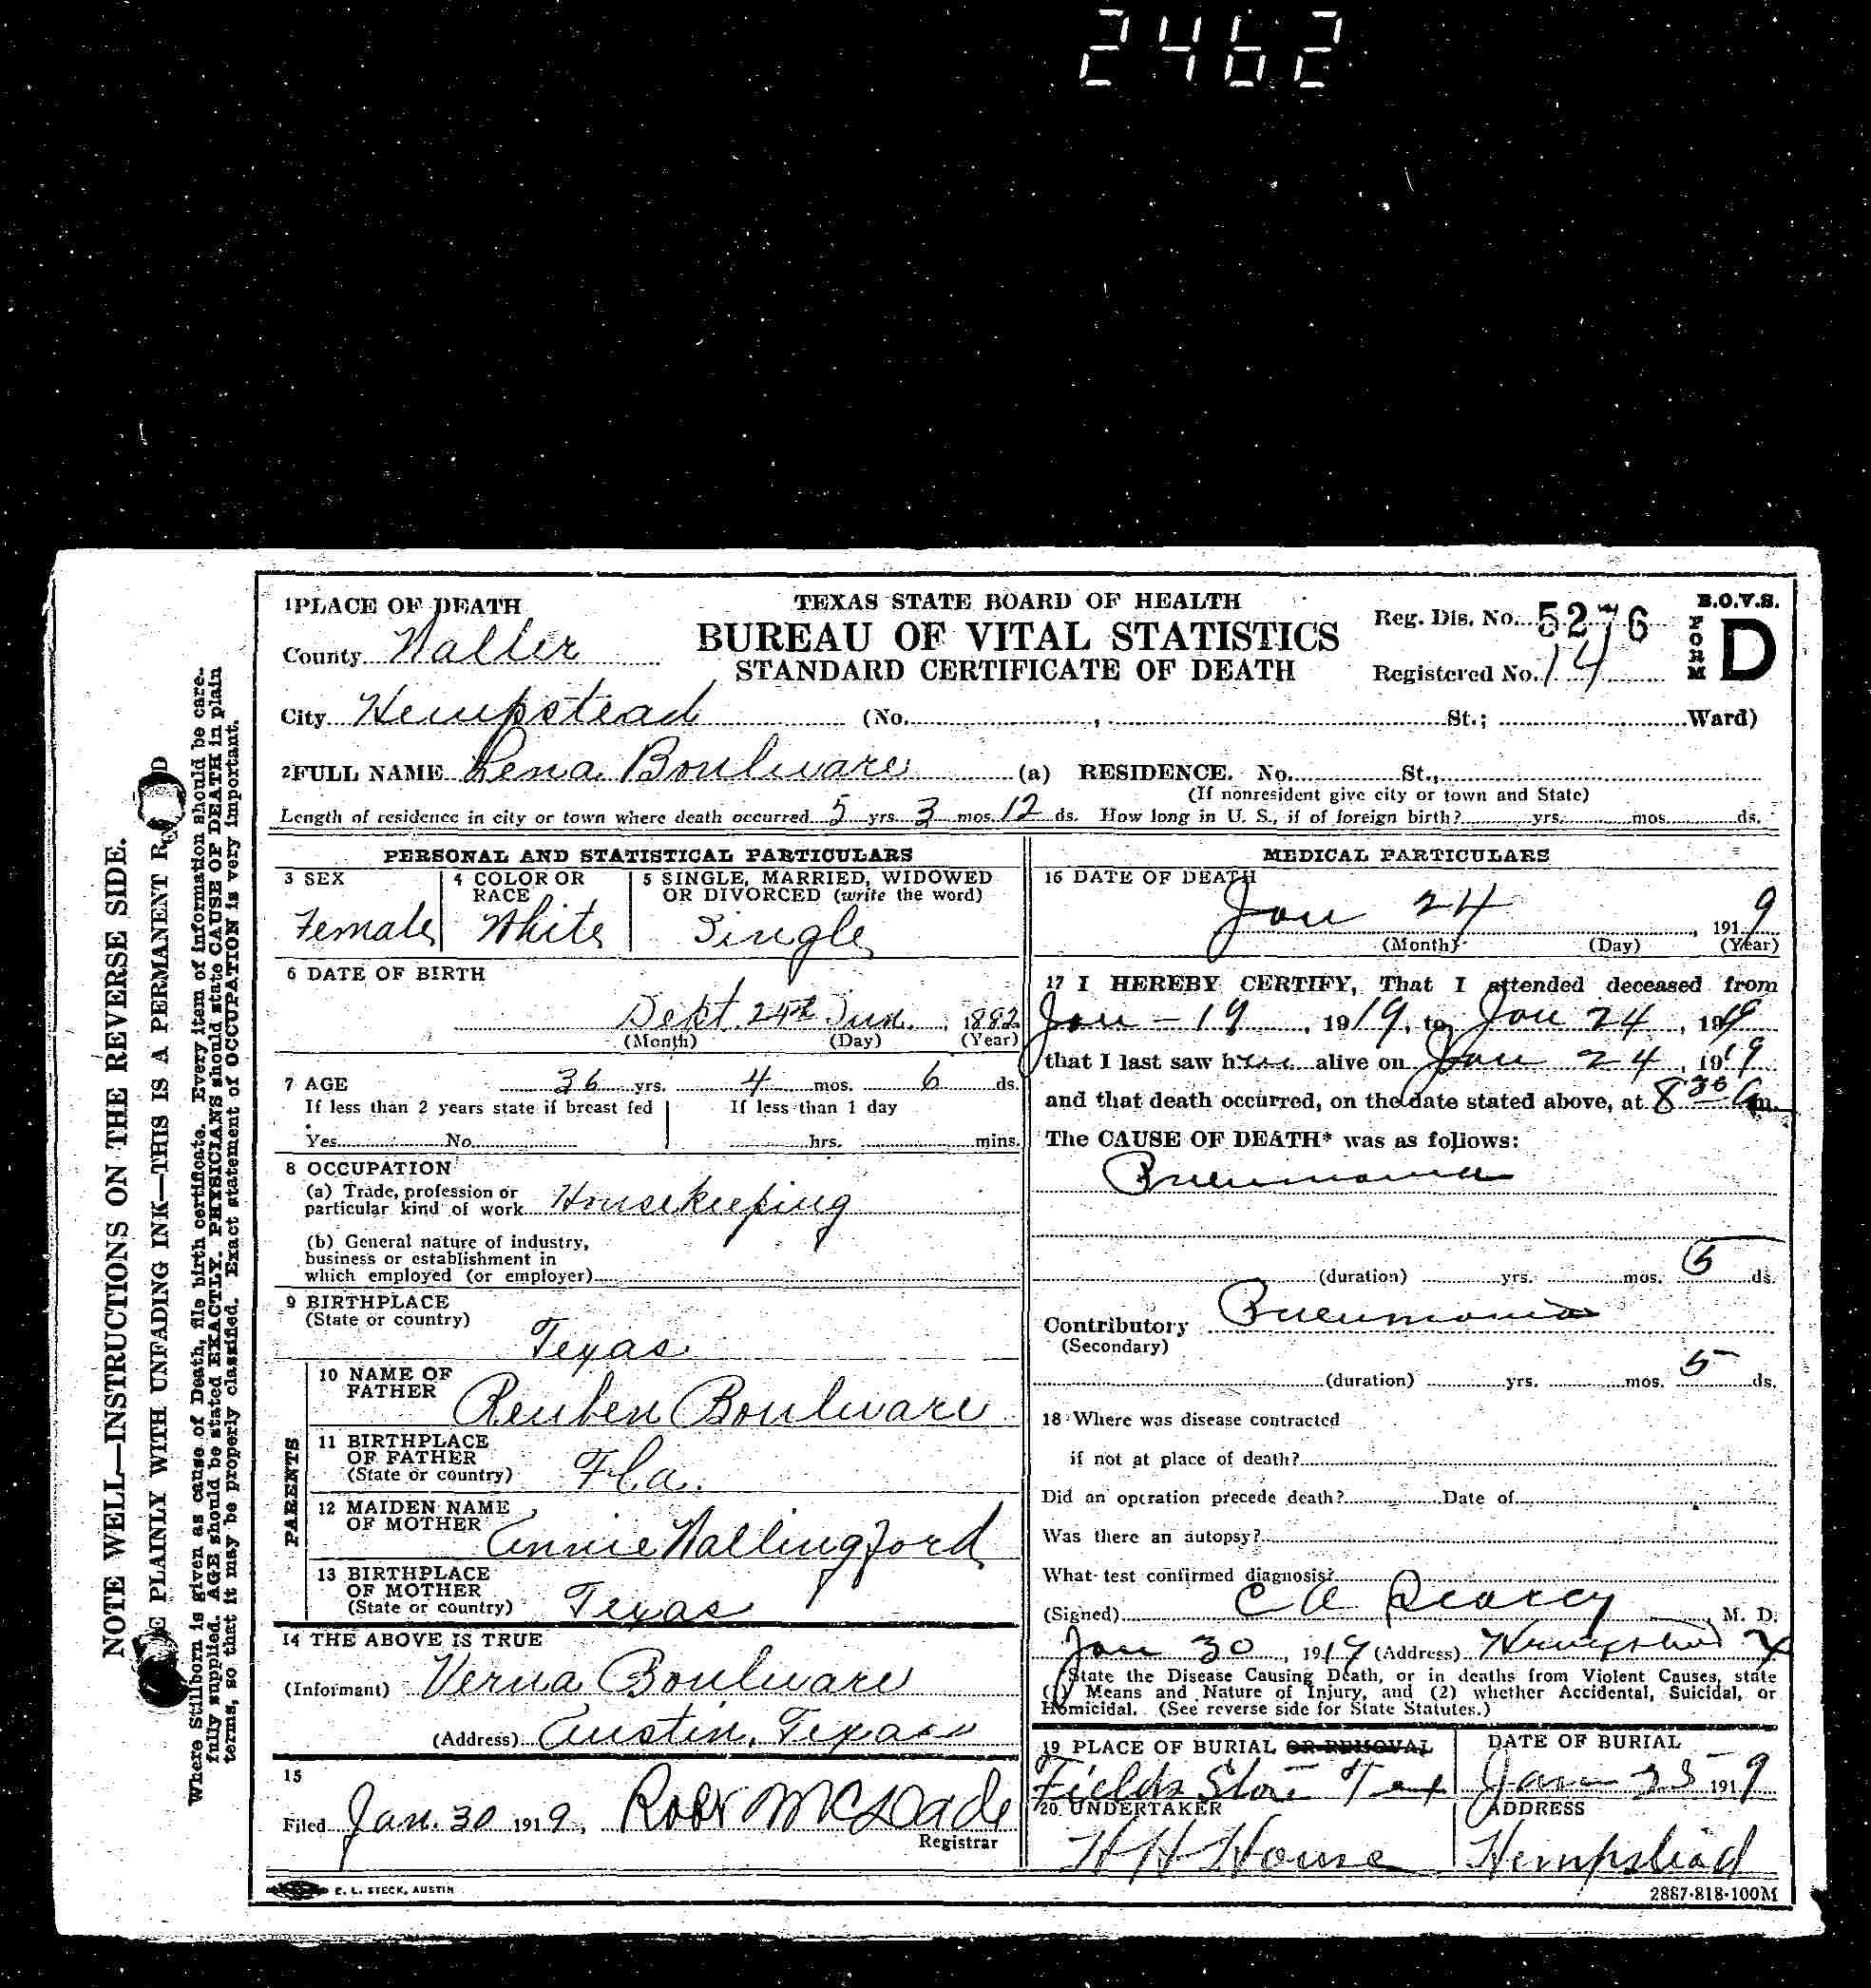 2462
1 PLACE OF DEATH
TEXAS STATE BOARD OF HEALTH
BUREAU OF VITAL STATISTICS
STANDARD CERTIFICATE OF DEATH
Reg. Dis. No. 5276
B.O.V.S.
FORM D
County Waller
Registered No. 14
City Hempstead (No. , St.; Ward)
2 FULL NAME Lena Boulware (a) RESIDENCE. No. St.,
(If nonresident give city or town and State)
Length of residence in city or town where death occurred 5 yrs. 3 mos. 12 ds. How long in U. S., if of foreign birth? yrs. mos. ds.
PERSONAL AND STATISTICAL PARTICULARS
3 SEX
Female
4 COLOR OR RACE
White
5 SINGLE, MARRIED, WIDOWED
OR DIVORCED (write the word)
Single
6 DATE OF BIRTH
Sept. 24th 1882
(Month) (Day) (Year)
7 AGE 36 yrs. 4 mos. 6 ds.
If less than 2 years state if breast fed
If less than 1 day
Yes No hrs. mins.
8 OCCUPATION
(a) Trade, profession or
particular kind of work Housekeeping
(b) General nature of industry,
business or establishment in
which employed (or employer)
9 BIRTHPLACE
(State or country)
Texas
PARENTS
10 NAME OF
FATHER Reuben Boulware
11 BIRTHPLACE
OF FATHER
(State or country) Fla.
12 MAIDEN NAME
OF MOTHER Annie Wallingford
13 BIRTHPLACE
OF MOTHER
(State or country) Texas
14 THE ABOVE IS TRUE
(Informant) Verna Boulware
(Address) Austin, Texas
15
Filed Jan. 30 1919, Robt McDade
Registrar
E. L. STECK, AUSTIN
MEDICAL PARTICULARS
16 DATE OF DEATH
Jan 24, 1919
(Month) (Day) (Year)
17 I HEREBY CERTIFY, That I attended deceased from
Jan - 19, 1919, to Jan 24, 1919
that I last saw her alive on Jan 24, 1919
and that death occurred, on the date stated above, at 8 30 a m.
The CAUSE OF DEATH* was as follows:
Pneumonia
(duration) yrs. mos. 5 ds.
Contributory Pneumonia
(Secondary)
(duration) yrs. mos. 5 ds.
18 Where was disease contracted
if not at place of death?
Did an operation precede death? Date of
Was there an autopsy?
What test confirmed diagnosis?
(Signed) C A Searcy, M. D.
Jan 30, 1919 (Address) Hempstead
(State the Disease Causing Death, or in deaths from Violent Causes, state
(1) Means and Nature of Injury, and (2) whether Accidental, Suicidal, or
Homicidal. (See reverse side for State Statutes.)
19 PLACE OF BURIAL OR REMOVAL
Fields Store Tex
DATE OF BURIAL
Jan 25 1919
20 UNDERTAKER
H H House
ADDRESS
Hempstead
2887-818-100M
NOTE WELL—INSTRUCTIONS ON THE REVERSE SIDE.
E PLAINLY WITH UNFADING INK—THIS IS A PERMANENT R D
Where Stillborn is given as cause of Death, file birth certificate. Every item of information should be care-
fully supplied. AGE should be stated EXACTLY. PHYSICIANS should state CAUSE OF DEATH in plain
terms, so that it may be properly classified. Exact statement of OCCUPATION is very important.